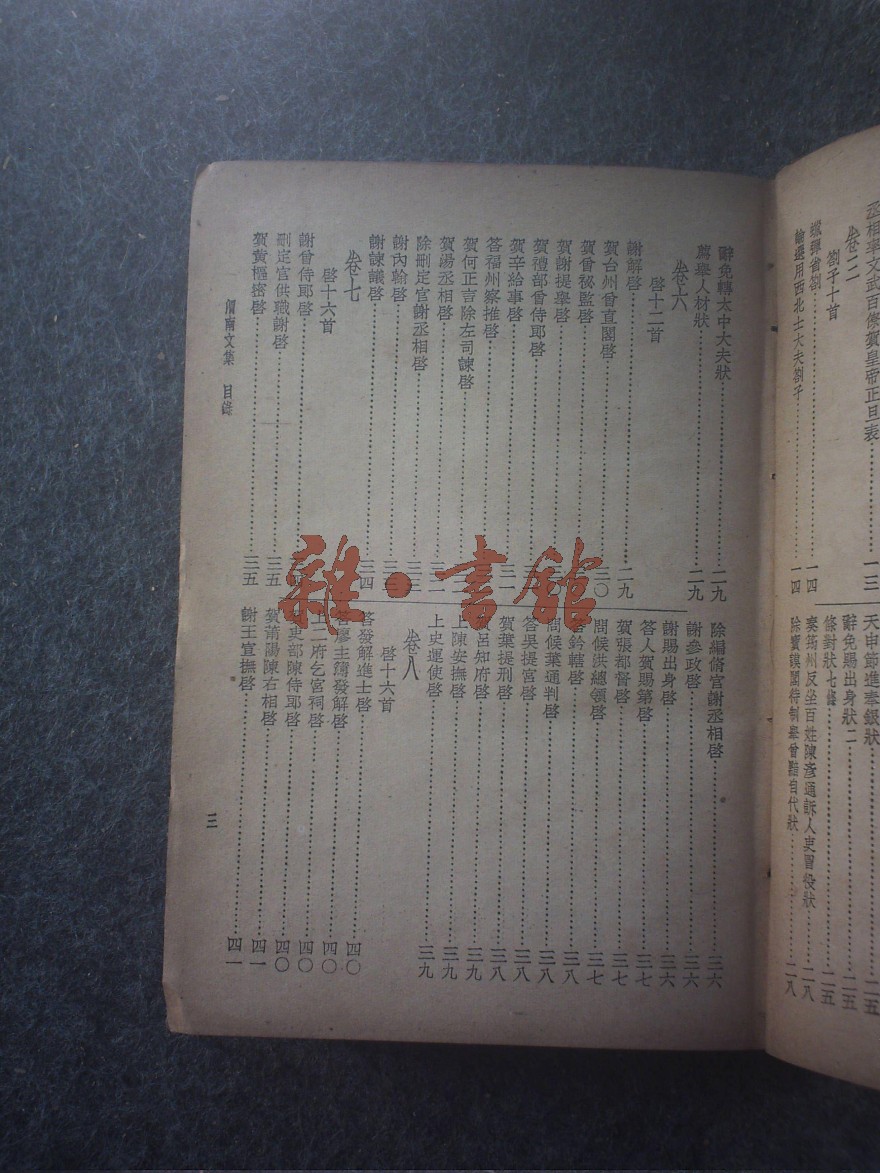 丞相率文武百僚賀皇帝正旦表……一三
卷三
劄子十首
蠟彈省劄……一四
論選用西北士大夫劄子……一四
天申節進奉銀狀……二五
辭免賜出身狀二……二五
條對狀七條……二五
奏筠州反坐百姓陳彥通訴人吏冒役狀……二八
除寶謨閣待制舉曾黯自代狀……二八
辭免轉太中大夫狀……二九
薦舉人材狀……二九
卷六
啓十二首
謝解啓……二九
賀台州曾直閣啓……三〇
賀曾祕監啓
賀謝提舉啓
賀禮部曾侍郎啓
賀辛給事啓
答福州察推啓
賀何正言除左司諫啓
賀湯丞相啓
除刪定官謝丞相啓
謝內翰啓
謝諫議啓……三四
卷七
啓十六首
謝曾侍郎啓
刪定官供職謝啓……三五
賀黃樞密啓……三五
除編脩官謝丞相啓……三六
謝參政啓……三六
謝賜出身啓……三六
答人賀賜第啓……三七
賀張都督啓……三七
問候洪總領啓……三七
答鈐轄啓……三八
問候葉通判啓……三八
答吳提宮啓……三八
賀葉提刑啓……三八
賀呂知府啓……三九
上陳安撫啓……三九
上史運使啓……三九
卷八
啓十六首
答發解進士啓……四〇
答廖主簿發解啓……四〇
上二府乞宮祠啓……四〇
賀吏部陳侍郎啓……四〇
賀莆陽陳右相啓……四一
謝王宣撫啓……四一
渭南文集 目錄
三
雜·書館